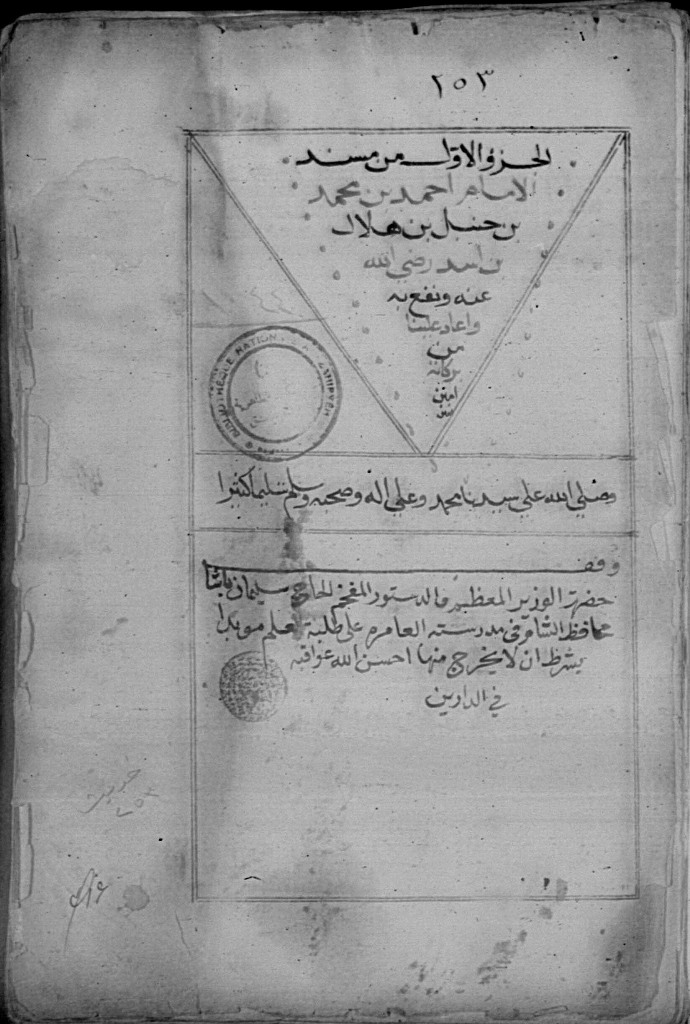 ٢٥٣
الجزؤ الاول من مسند
الامام احمد بن محمد
بن حنبل بن هلال
بن اسد رضي الله
عنه ونفع به
واعاد علينا
من
بركاته
امين
وصلي الله علي سيدنا محمد وعلي اله وصحبه وسلم تسليما كثيرا
وقف
حضرة الوزير المعظم والدستور المفخم الحاج سليمان باشا
محافظ الشام في مدرسته العامره على طلبة العلم موبدا
بشرط ان لا يخرج منها احسن الله عواقبه
في الدارين
حديث
BIBLIOTHÈQUE NATION